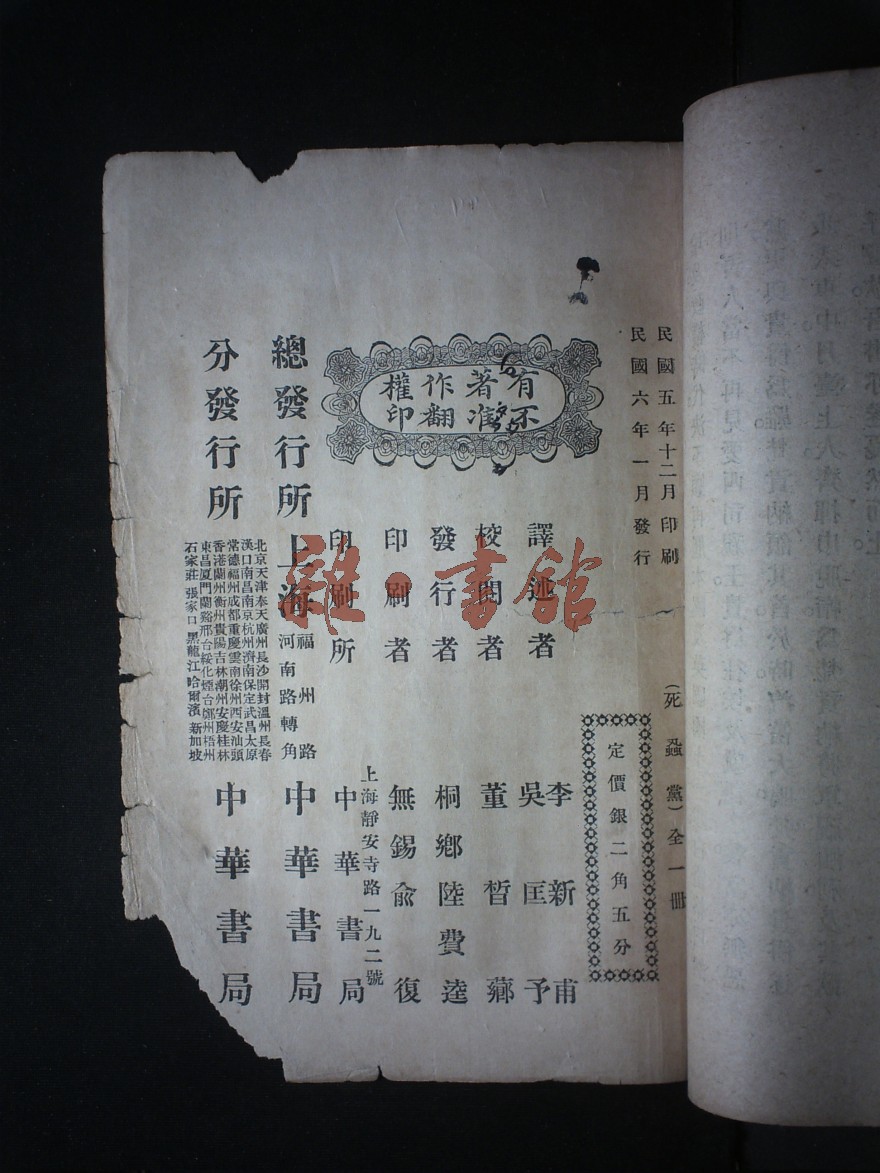 民國五年十二月印刷
民國六年一月發行
(死蝨黨)全一冊
定價銀二角五分
有著作權
不准翻印
譯述者 李新甫
吳匡予
校閱者 董皙薌
發行者 桐鄉陸費逵
印刷者 無錫俞復
印刷所 上海靜安寺路一九二號
中華書局
總發行所 上海 福州路
河南路轉角
中華書局
分發行所
北京天津奉天廣州長沙開封溫州長春
漢口南昌南京杭州濟南保定武昌太原
常德福州成都重慶雲南徐州西安汕頭
香港蘭州衡州貴陽吉林潮州安慶桂林
東昌厦門蘭谿邢台綏化煙台鄭州梧州
石家莊 張家口 黑龍江 哈爾濱 新加坡
中華書局
雜·書館